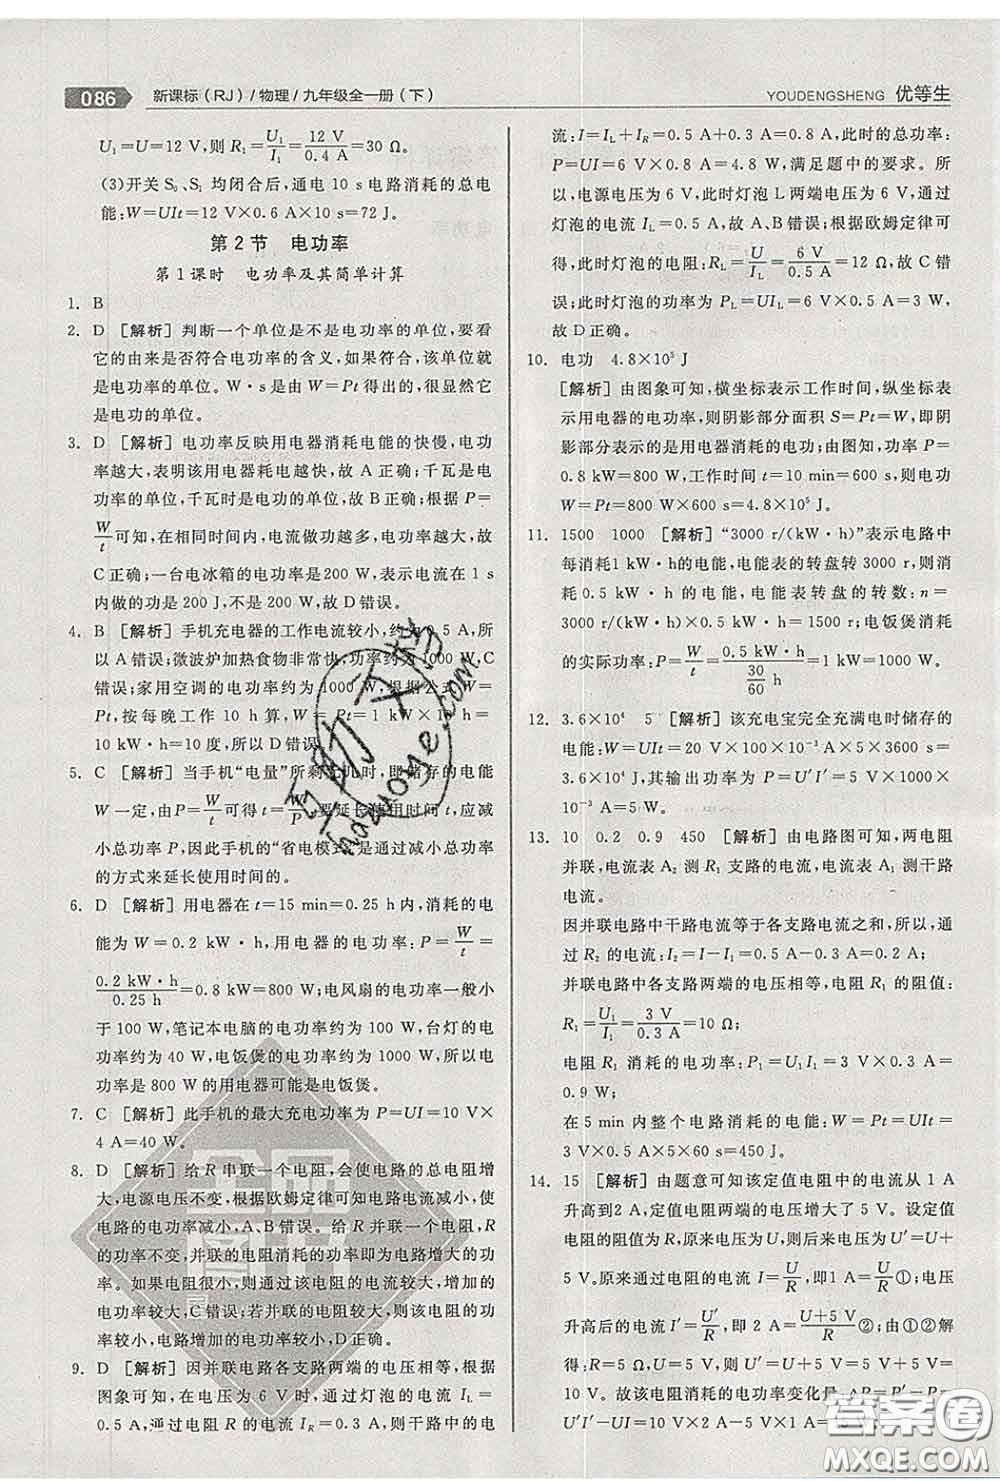 086 新课标(RJ)/物理/九年级全一册(下)
YOUDENGSHENG 优等生
U₁=U=12 V,则 R₁=U₁/I₁=12 V/0.4 A=30 Ω.
(3)开关 S₀、S₁ 均闭合后,通电 10 s 电路消耗的总电
能:W=UIt=12 V×0.6 A×10 s=72 J。
第2节 电功率
第1课时 电功率及其简单计算
1. B
2. D [解析] 判断一个单位是不是电功率的单位,要看
它的由来是否符合电功率的含义,如果符合,该单位就
是电功率的单位。W·s是根据 W=Pt 得出的,很显然它
是电功的单位。
3. D [解析] 电功率反映用电器消耗电能的快慢,电功
率越大,表明该用电器耗电越快,故 A 正确;千瓦是电
功率的单位,千瓦时是电功的单位,故 B 正确;根据 P=
W/t 可知,在相同时间内,电流做功越多,电功率越大,故
C 正确;一台电冰箱的电功率是 200 W,表示电流在 1 s
内做的功是 200 J,不是 200 W,故 D 错误。
4. B [解析] 手机充电器的工作电流较小,约为 0.5 A,所
以 A 错误;微波炉加热食物非常快,功率约为 1000 W,C
错误;家用空调的电功率约为 1000 W,根据公式 W=
Pt,按每晚工作 10 h 算,W=Pt=1 kW×10 h=
10 kW·h=10度,所以 D 错误。
5. C [解析] 当手机“电量”所剩无几时,即储存的电能
W 一定,由 P=W/t 可得 t=W/P,要延长使用时间 t,应减
小总功率 P,因此手机的“省电模式”是通过减小总功率
的方式来延长使用时间的。
6. D [解析] 用电器在 t=15 min=0.25 h 内,消耗的电
能为 W=0.2 kW·h,用电器的电功率:P=W/t=
0.2 kW·h/0.25 h=0.8 kW=800 W;电风扇的电功率一般小
于 100 W,笔记本电脑的电功率约为 100 W,台灯的电功
率约为 40 W,电饭煲的电功率约为 1000 W,所以电功
率是 800 W 的用电器可能是电饭煲。
7. C [解析] 此手机的最大充电功率为 P=UI=10 V×
4 A=40 W。
8. D [解析] 给 R 串联一个电阻,会使电路的总电阻增
大,电源电压不变,根据欧姆定律可知电路电流减小,使
电路的电功率减小,A、B错误。给 R 并联一个电阻,R
的功率不变,并联的电阻消耗的功率即为电路增大的功
率。如果电阻很小,则通过该电阻的电流较大,电路增大
的功率较大,C 错误;若并联的电阻很大,则该电阻的功
率较小,电路增大的功率就较小,D正确。
9. D [解析] 因并联电路各支路两端的电压相等,根据
图象可知,在电压为 6 V 时,通过灯泡的电流 I_L=
0.5 A,通过电阻 R 的电流 I_R=0.3 A,则干路中的电
流:I=I_L+I_R=0.5 A+0.3 A=0.8 A,此时的总功率:
P=UI=6 V×0.8 A=4.8 W,满足题中的要求。所
以,电源电压为 6 V,此时灯泡 L 两端电压为 6 V,通过
灯泡的电流 I_L=0.5 A,故 A、B错误;根据欧姆定律可
得,此时灯泡的电阻:R_L=U/I_L=6 V/0.5 A=12 Ω,故 C 错
误;此时灯泡的功率为 P_L=UI_L=6 V×0.5 A=3 W,
故 D 正确。
10. 电功 4.8×10⁵ J
[解析] 由图象可知,横坐标表示工作时间,纵坐标表
示用电器的电功率,则阴影部分面积 S=Pt=W,即阴
影部分表示的是用电器消耗的电功;由图知,功率 P=
0.8 kW=800 W,工作时间 t=10 min=600 s,则电功
W=Pt=800 W×600 s=4.8×10⁵ J。
11. 1500 1000 [解析] “3000 r/(kW·h)”表示电路中
每消耗1 kW·h的电能,电能表的转盘转 3000 r,则消
耗0.5 kW·h 的电能,电能表转盘的转数:n=
3000 r/(kW·h)×0.5 kW·h=1500 r;电饭煲消耗
的实际功率:P=W/t=0.5 kW·h/(30/60 h)=1 kW=1000 W。
12. 3.6×10⁴ 5 [解析] 该充电宝完全充满电时储存的
电能:W=UIt=20 V×100×10⁻³ A×5×3600 s=
3.6×10⁴ J,其输出功率为 P=U′I′=5 V×1000×
10⁻³ A=5 W。
13. 10 0.2 0.9 450 [解析] 由电路图可知,两电阻
并联,电流表 A₂ 测 R₁ 支路的电流,电流表 A₁ 测干路
电流。
因并联电路中干路电流等于各支路电流之和,所以,通
过 R₂ 的电流:I₂=I-I₁=0.5 A-0.3 A=0.2 A;
并联电路中各支路两端的电压相等,电阻 R₁ 的阻值:
R₁=U₁/I₁=3 V/0.3 A=10 Ω;
电阻 R₁ 消耗的电功率:P₁=U₁I₁=3 V×0.3 A=
0.9 W;
在 5 min 内整个电路消耗的电能:W=Pt=UIt=
3 V×0.5 A×5×60 s=450 J。
14. 15 [解析] 由题意可知该定值电阻中的电流从 1 A
升高到2 A,定值电阻两端的电压增大了 5 V,设定值电
阻的阻值为 R,原来电阻两端的电压为 U,则 U′=U+
5 V。原来通过电阻的电流 I=U/R,即1 A=U/R①;电压
升高后的电流 I′=U′/R,即2 A=(U+5 V)/R②;由①②解
得:R=5 Ω,U=5 V,则 U′=U+5 V=5 V+5 V=
10 V。故该电阻消耗的电功率变化量 △P=P′-P=
U′I′-UI=10 V×2 A-5 V×1 A=15 W。
互助文档
huzuoye.com
全品图书
答案圈
MXQE.COM